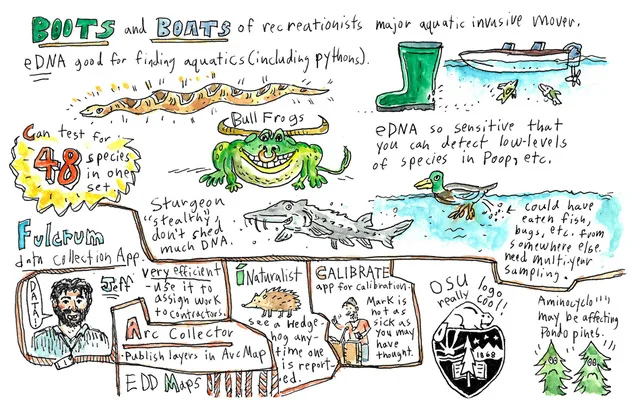 BOOTS and BOATS of recreationists major aquatic invasive mover.
eDNA good for finding aquatics (including pythons).
Can test for
48 species
in one
set.
Bull Frogs
eDNA so sensitive that
you can detect low-levels
of species in Poop, etc.
Sturgeon
"stealthy"
don't shed
much DNA.
could have
eaten fish,
bugs, etc. from
somewhere else.
need multi-year
sampling.
Fulcrum
data collection App.
DATA!
Jeff
very efficient
-use it to
assign work
to contractors.
Arc Collector
-Publish layers in ArcMap
EDD Maps
iNaturalist
see a Hedge-
hog any-
time one
is report-
ed.
CALIBRATE
app for calibration.
Mark is
not as
sick as
you may
have
thought.
OSU logo
really cool!
1868
Aminocyclo
may be affecting
Pondo pines.